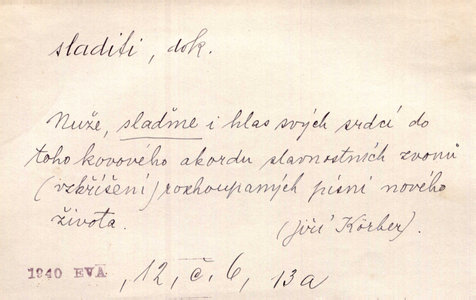 sladiti, dok.
Nuže, slaďme i hlas svých srdcí do
toho kovového akordu slavnostních zvonů
(vzkříšení) rozhoupaných písní nového
života. (Jiří Körber).
1940 EVA, 12, č. 6, 13a